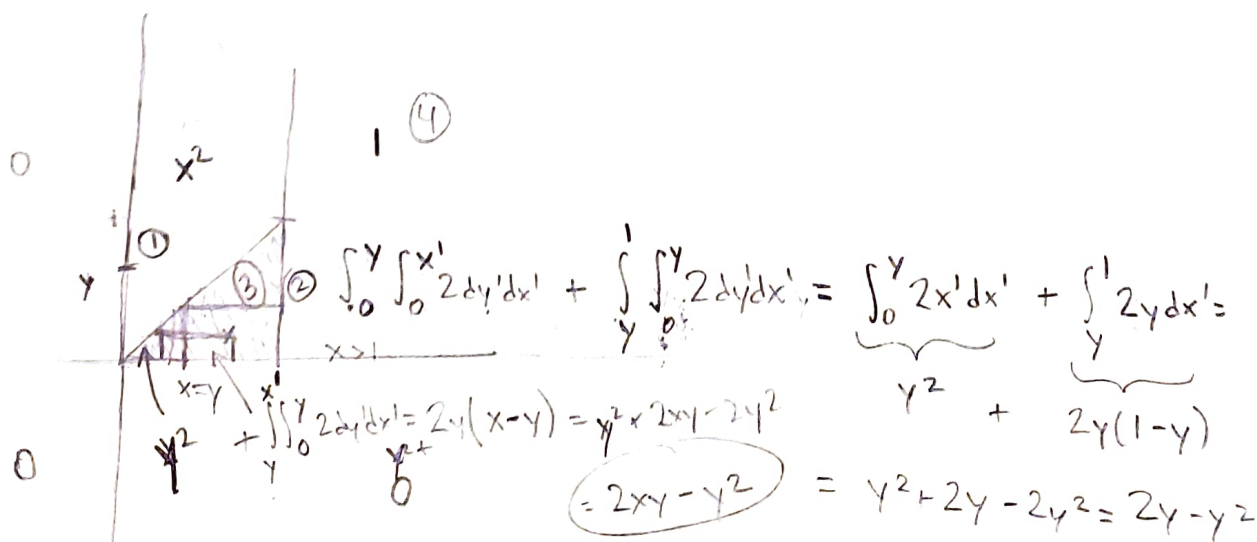 1 ④
0 x²
1
①
y ③ ② ∫₀^y ∫₀^x' 2dy'dx' + ∫_y^1 ∫₀^y 2dy'dx' = ∫₀^y 2x'dx' + ∫_y^1 2ydx' =
x>1
x=y y² + 2y(1-y)
y² + ∫_y ∫₀^y 2dy'dx' = 2y(x-y) = y² + 2xy - 2y²
0 0 = 2xy - y² = y² + 2y - 2y² = 2y - y²